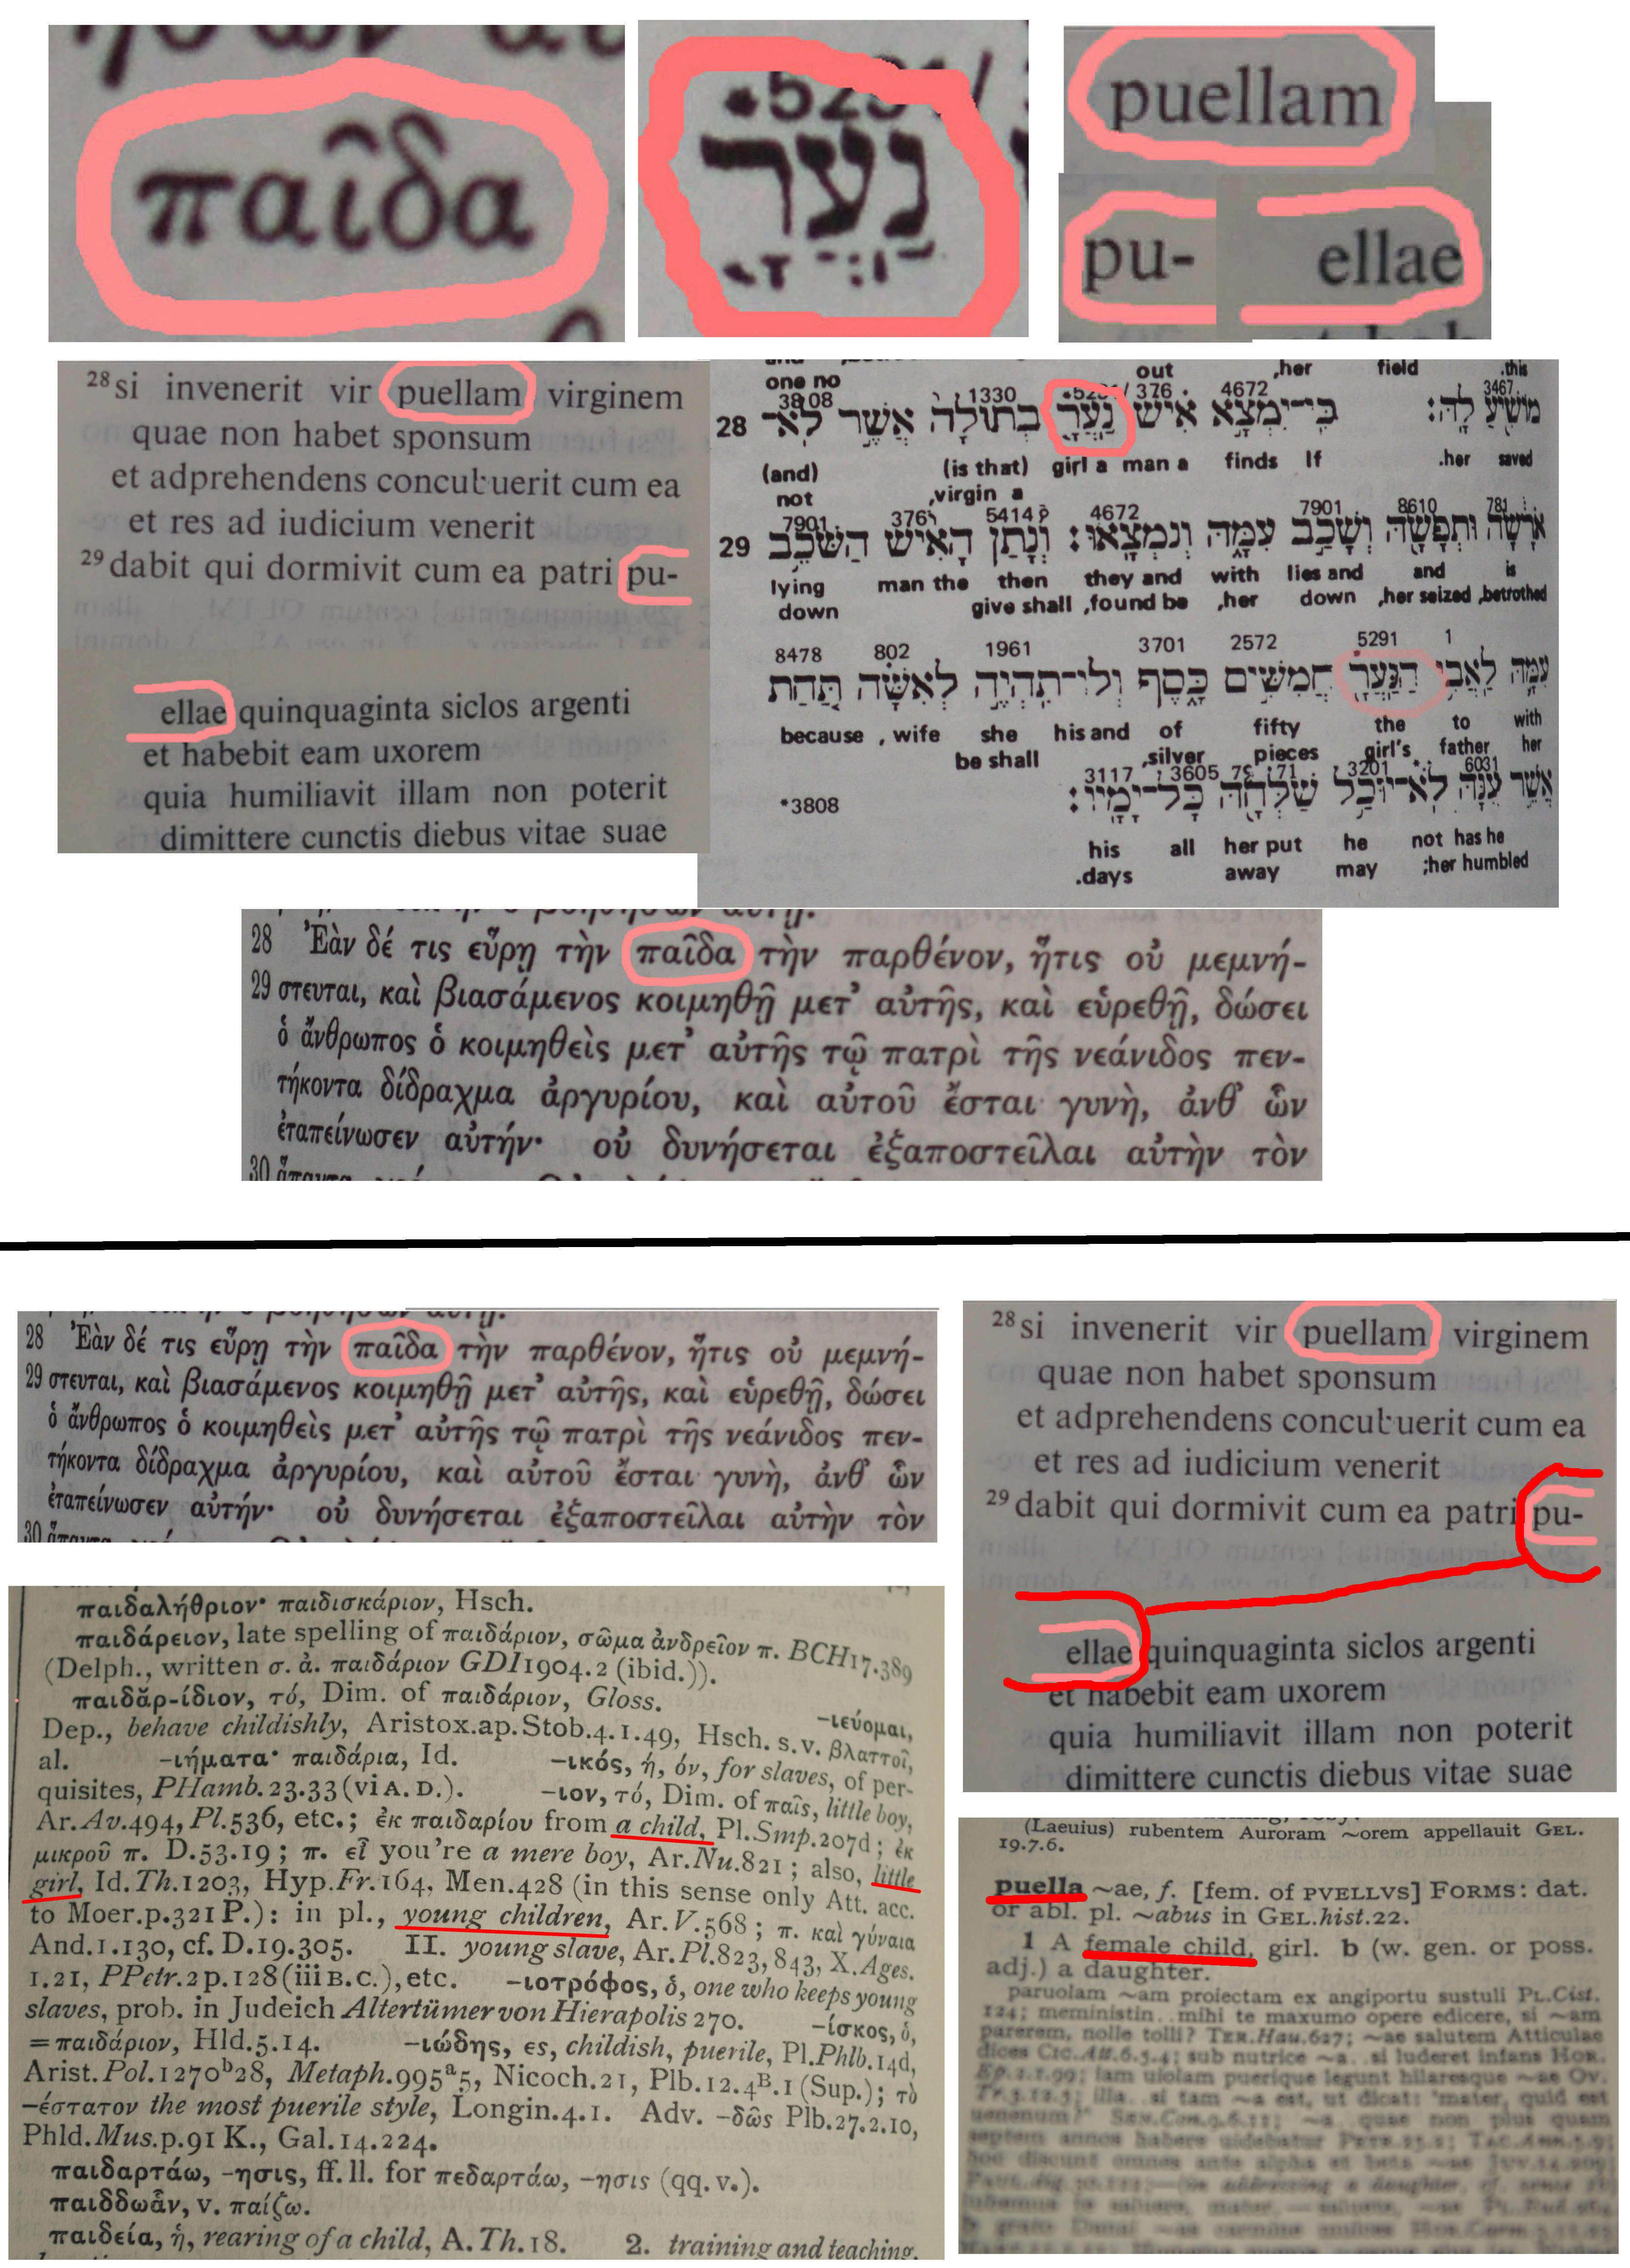 παῖδα
נַעֲרָ
puellam
pu-
ellae
28 si invenerit vir puellam virginem
quae non habet sponsum
et adprehendens concubuerit cum ea
et res ad iudicium venerit
29 dabit qui dormivit cum ea patri pu-
ellae quinquaginta siclos argenti
et habebit eam uxorem
quia humiliavit illam non poterit
dimittere cunctis diebus vitae suae
one no out ,her field .this
3808 1330 376 4672 3467
28 מוֹשִׁיעַ לָהּ׃ כִּי־יִמְצָא אִישׁ נַעֲרָ בְתוּלָה אֲשֶׁר לֹא־
(and) (is that) girl a man a finds If .her saved
not ,virgin a
7901 376 5414 4672 7901 8610 781
29 אֹרָשָׂה וּתְפָשָׂהּ וְשָׁכַב עִמָּהּ וְנִמְצָאוּ׃ וְנָתַן הָאִישׁ הַשֹּׁכֵב
lying man the then they and with lies and and is
down give shall ,found be ,her down ,her seized ,betrothed
8478 802 1961 3701 2572 5291 1
עִמָּהּ לַאֲבִי הַנַּעֲרָ חֲמִשִּׁים כָּסֶף וְלוֹ־תִהְיֶה לְאִשָּׁה תַּחַת
because , wife she his and of fifty the to with
be shall ,silver pieces girl's father her
3117 3605 7971 3201 6031
*3808 אֲשֶׁר עִנָּהּ לֹא־יוּכַל שַׁלְּחָהּ כָּל־יָמָיו׃
his all her put he not has he
.days away may ;her humbled
28 Ἐὰν δέ τις εὕρῃ τὴν παῖδα τὴν παρθένον, ἥτις οὐ μεμνή-
29 στευται, καὶ βιασάμενος κοιμηθῇ μετ’ αὐτῆς, καὶ εὑρεθῇ, δώσει
ὁ ἄνθρωπος ὁ κοιμηθεὶς μετ’ αὐτῆς τῷ πατρὶ τῆς νεάνιδος πεν-
τήκοντα δίδραχμα ἀργυρίου, καὶ αὐτοῦ ἔσται γυνὴ, ἀνθ’ ὧν
ἐταπείνωσεν αὐτήν· οὐ δυνήσεται ἐξαποστεῖλαι αὐτὴν τὸν
30
28 Ἐὰν δέ τις εὕρῃ τὴν παῖδα τὴν παρθένον, ἥτις οὐ μεμνή-
29 στευται, καὶ βιασάμενος κοιμηθῇ μετ’ αὐτῆς, καὶ εὑρεθῇ, δώσει
ὁ ἄνθρωπος ὁ κοιμηθεὶς μετ’ αὐτῆς τῷ πατρὶ τῆς νεάνιδος πεν-
τήκοντα δίδραχμα ἀργυρίου, καὶ αὐτοῦ ἔσται γυνὴ, ἀνθ’ ὧν
ἐταπείνωσεν αὐτήν· οὐ δυνήσεται ἐξαποστεῖλαι αὐτὴν τὸν
30
28 si invenerit vir puellam virginem
quae non habet sponsum
et adprehendens concubuerit cum ea
et res ad iudicium venerit
29 dabit qui dormivit cum ea patri pu-
ellae quinquaginta siclos argenti
et habebit eam uxorem
quia humiliavit illam non poterit
dimittere cunctis diebus vitae suae
παιδαλήθριον· παιδισκάριον, Hsch.
παιδάρειον, late spelling of παιδάριον, σῶμα ἀνδρεῖον π. BCH17.389
(Delph., written σ. ἀ. παιδάριον GDI1904.2 (ibid.)).
παιδᾰρ-ίδιον, τό, Dim. of παιδάριον, Gloss. -ιεύομαι,
Dep., behave childishly, Aristox.ap.Stob.4.1.49, Hsch. s.v. βλαττοῖ,
al. -ιήματα· παιδάρια, Id. -ικός, ή, όν, for slaves, of per-
quisites, PHamb.23.33 (vi A. D.). -ιον, τό, Dim. of παῖς, little boy,
Ar.Av.494, Pl.536, etc.; ἐκ παιδαρίου from a child, Pl.Smp.207d; ἐκ
μικροῦ π. D.53.19; π. εἶ you're a mere boy, Ar.Nu.821; also, little
girl, Id.Th.1203, Hyp.Fr.164, Men.428 (in this sense only Att. acc.
to Moer.p.321 P.): in pl., young children, Ar.V.568; π. καὶ γύναια
And.1.130, cf. D.19.305. II. young slave, Ar.Pl.823, 843, X.Ages.
1.21, PPetr.2p.128 (iii B.C.), etc. -ιοτρόφος, ὁ, one who keeps young
slaves, prob. in Judeich Altertümer von Hierapolis 270. -ίσκος, ὁ,
= παιδάριον, Hld.5.14. -ιώδης, ες, childish, puerile, Pl.Phlb.14d,
Arist.Pol.1270b28, Metaph.995a5, Nicoch.21, Plb.12.4B.1 (Sup.); τὸ
-έστατον the most puerile style, Longin.4.1. Adv. -δῶς Plb.27.2.10,
Phld.Mus.p.91 K., Gal.14.224.
παιδαρτάω, -ησις, ff. ll. for πεδαρτάω, -ησις (qq. v.).
παιδδωἄν, v. παίζω.
παιδεία, ἡ, rearing of a child, A.Th.18. 2. training and teaching,
(Laeuius) rubentem Auroram ~orem appellauit GEL.
19.7.6.
puella ~ae, f. [fem. of PVELLVS] FORMS: dat.
or abl. pl. ~abus in GEL.hist.22.
1 A female child, girl. b (w. gen. or poss.
adj.) a daughter.
paruolam ~am proiectam ex angiportu sustuli PL.Cist.
124; meministin.. mihi te maxumo opere edicere, si ~am
parerem, nolle tolli? TER.Hau.627; ~ae salutem Atticulae
dices CIC.Att.6.5.4; sub nutrice ~a.. si luderet infans HOR.